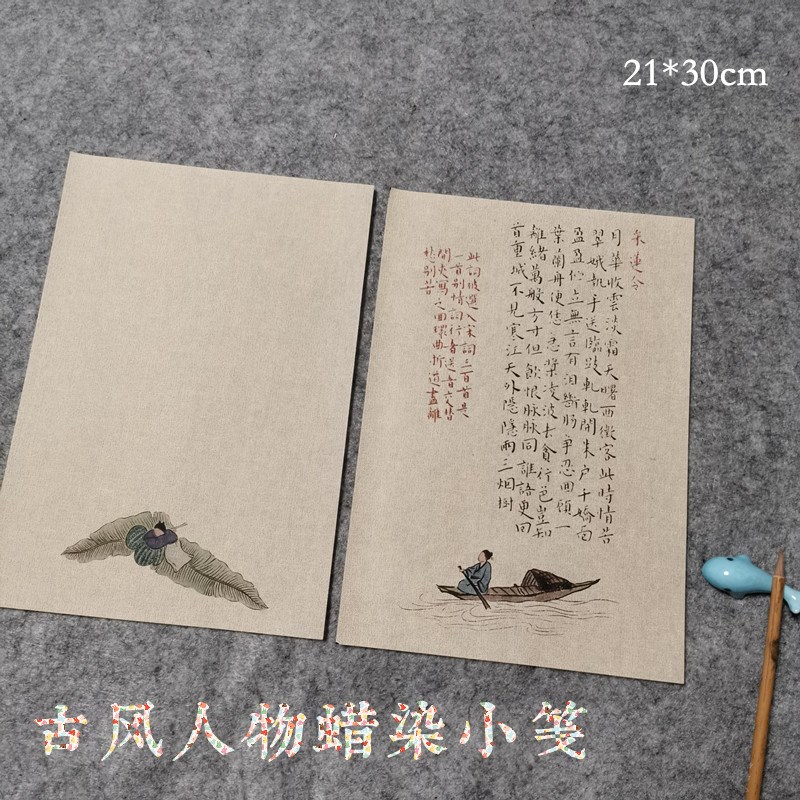 21*30cm
采蓮令
月華收雲淡霜天曙西徵客此時情苦
翠娥執手送臨歧軋軋開朱户千嬌面
盈盈佇立無言有泪斷肠爭忍回顧一
葉蘭舟便恁急槳凌波去貪行色豈知
離緒萬般方寸但飲恨脉脉同誰語更回
首重城不見寒江天外隱隱兩三烟樹
此詞被選入宋詞三百首是
一首别情詞行者送者交替
間夾寫之回環曲折道盡離
愁别苦
古风人物蜡染小笺